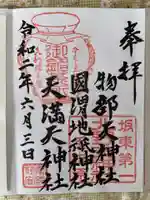 奉拝
坂東第一
物部天神社
國渭地祇神社
天満天神社
令和二年六月三日